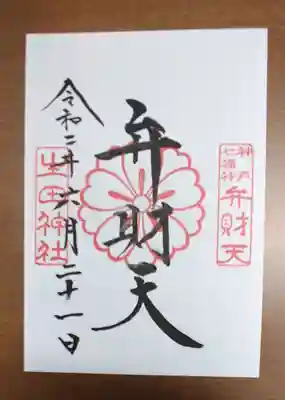 神戸
七福神
弁財天
弁財天
生田神社
令和二年六月二十一日